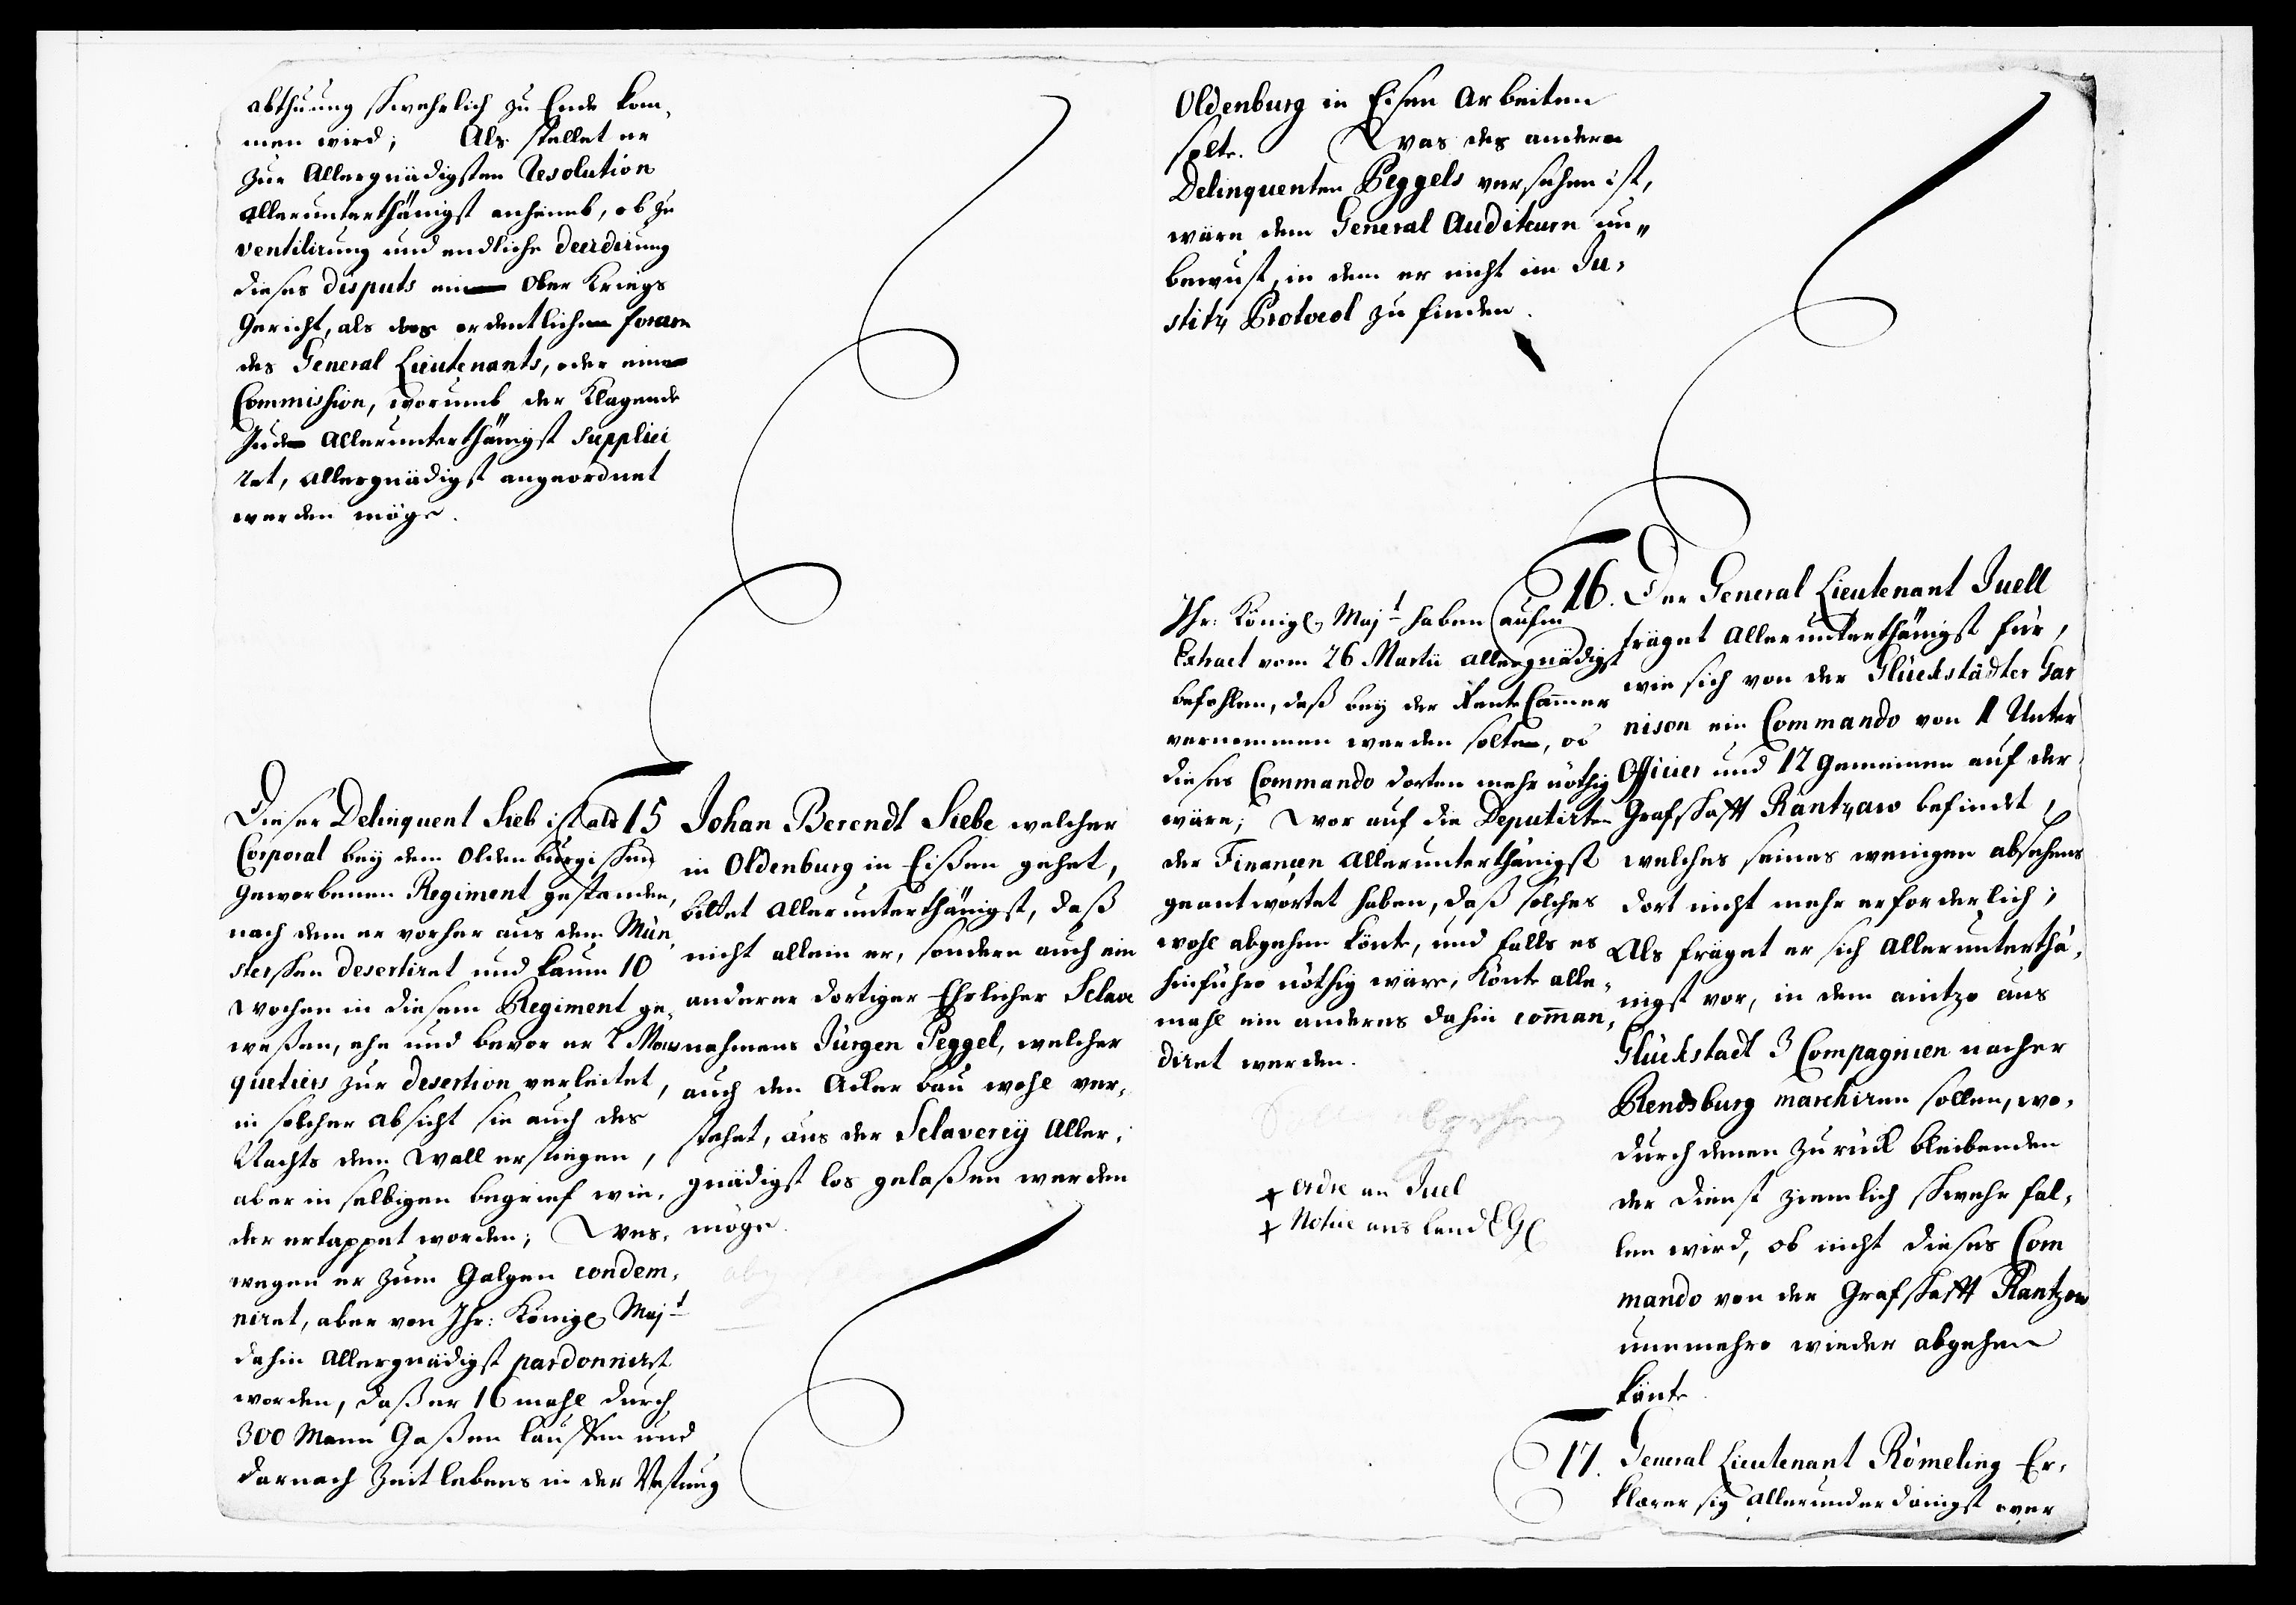 abthuung schwehrlich zu Ende kom,
men wird; Als stellet er
zur Allergnädigsten Resolution
allerunterthänigst anheimb, ob zu
ventilirung und endliche decidirung
dieses disputs ein Ober Kriegs
Gericht, als das ordentliche forum
des General Lieutenants, oder eine
Commission, worumb der Klagende
Jude Allerunterthänigst supplici
ret, allergnädigst angeordnet
werden möge.
Dieser Delinquent Sieb ist als
Corporal bey dem Oldenburgischen
Geworbenen Regiment gestanden,
nach dem er vorher aus dem Mün,
sterschen desertiret und kaum 10
Wochen in diesem Regiment ge,
weßen, ehe und bevor er 2 Mous
quetiers zur desertion verleitet,
in solcher absicht sie auch des
Nachts den Wall erstiegen,
aber in selbigen begrief wie,
der ertappet worden; Wes,
wegen er zum Galgen condem,
niret, aber von Ihr: Königl Majt
dahin Allergnädigst pardonniret
worden, daß er 16 mahl durch
300 Mann Gaßen lauffen und
darnach Zeit lebens in der Vestung
15 Johan Berendt Siebe welcher
in Oldenburg in Eißen gehet,
bittet Allerunterthänigst, daß
nicht allein er, sondern auch ein
anderer dortiger Ehrlicher Sclave
nahmens Jürgen Peggel, welcher
auch den Acker bau wohl ver,
stehet, aus der Sclaverey Aller,
gnädigst los gelaßen werden
möge.
Oldenburg in Eisen Arbeiten
solte. Was des andern
Delinquenten Peggels versehen ist,
wäre dem General Auditeurn un"
bewust, in dem er nicht im Ju,
stitz Protocol zu finden.
Ihr: Königl Majt haben aufm
Extract vom 26 Martii allergnädigst
befohlen, daß bey der Rente Cam̄er
vernommen werden solte, ob
dieses Commando dorten mehr nöthig
wäre; Wor auf die Deputirten
der Financen Allerunterthänigst
geantwortet haben, daß solches
wohl abgehen könte, und falls es
hinführo nöthig wäre, könte alle,
mahl ein anderes dahin com̄an,
diret werden.
+ Ordre an Juel
+ Notice ans Land EtGl
16. Der General Lieutenant Juell
fräget Allerunterthänigst für,
wie sich von der Glückstädter Gar
nison ein Commando von 1 Unter
Officier und 12 Gemeinen auf der
Grafschafft Rantzaw befindet,
welches seines wenigen absehens
dort nicht mehr erforderlich;
Als fräget er sich Allerunterthä,
nigst vor, in dem anitzo aus
Glückstadt 3 Compagnien nacher
Rendsburg marchiren sollen, wo,
durch denen zurück bleibenden
der dienst ziemlich schwehr fal,
len wird, ob nicht dieses Com
mando von der Grafschafft Rantzow
nunmehro wieder abgehen
könte.
17. General Lieutenant Römeling Er,
klærer sig allerunderdanigst over